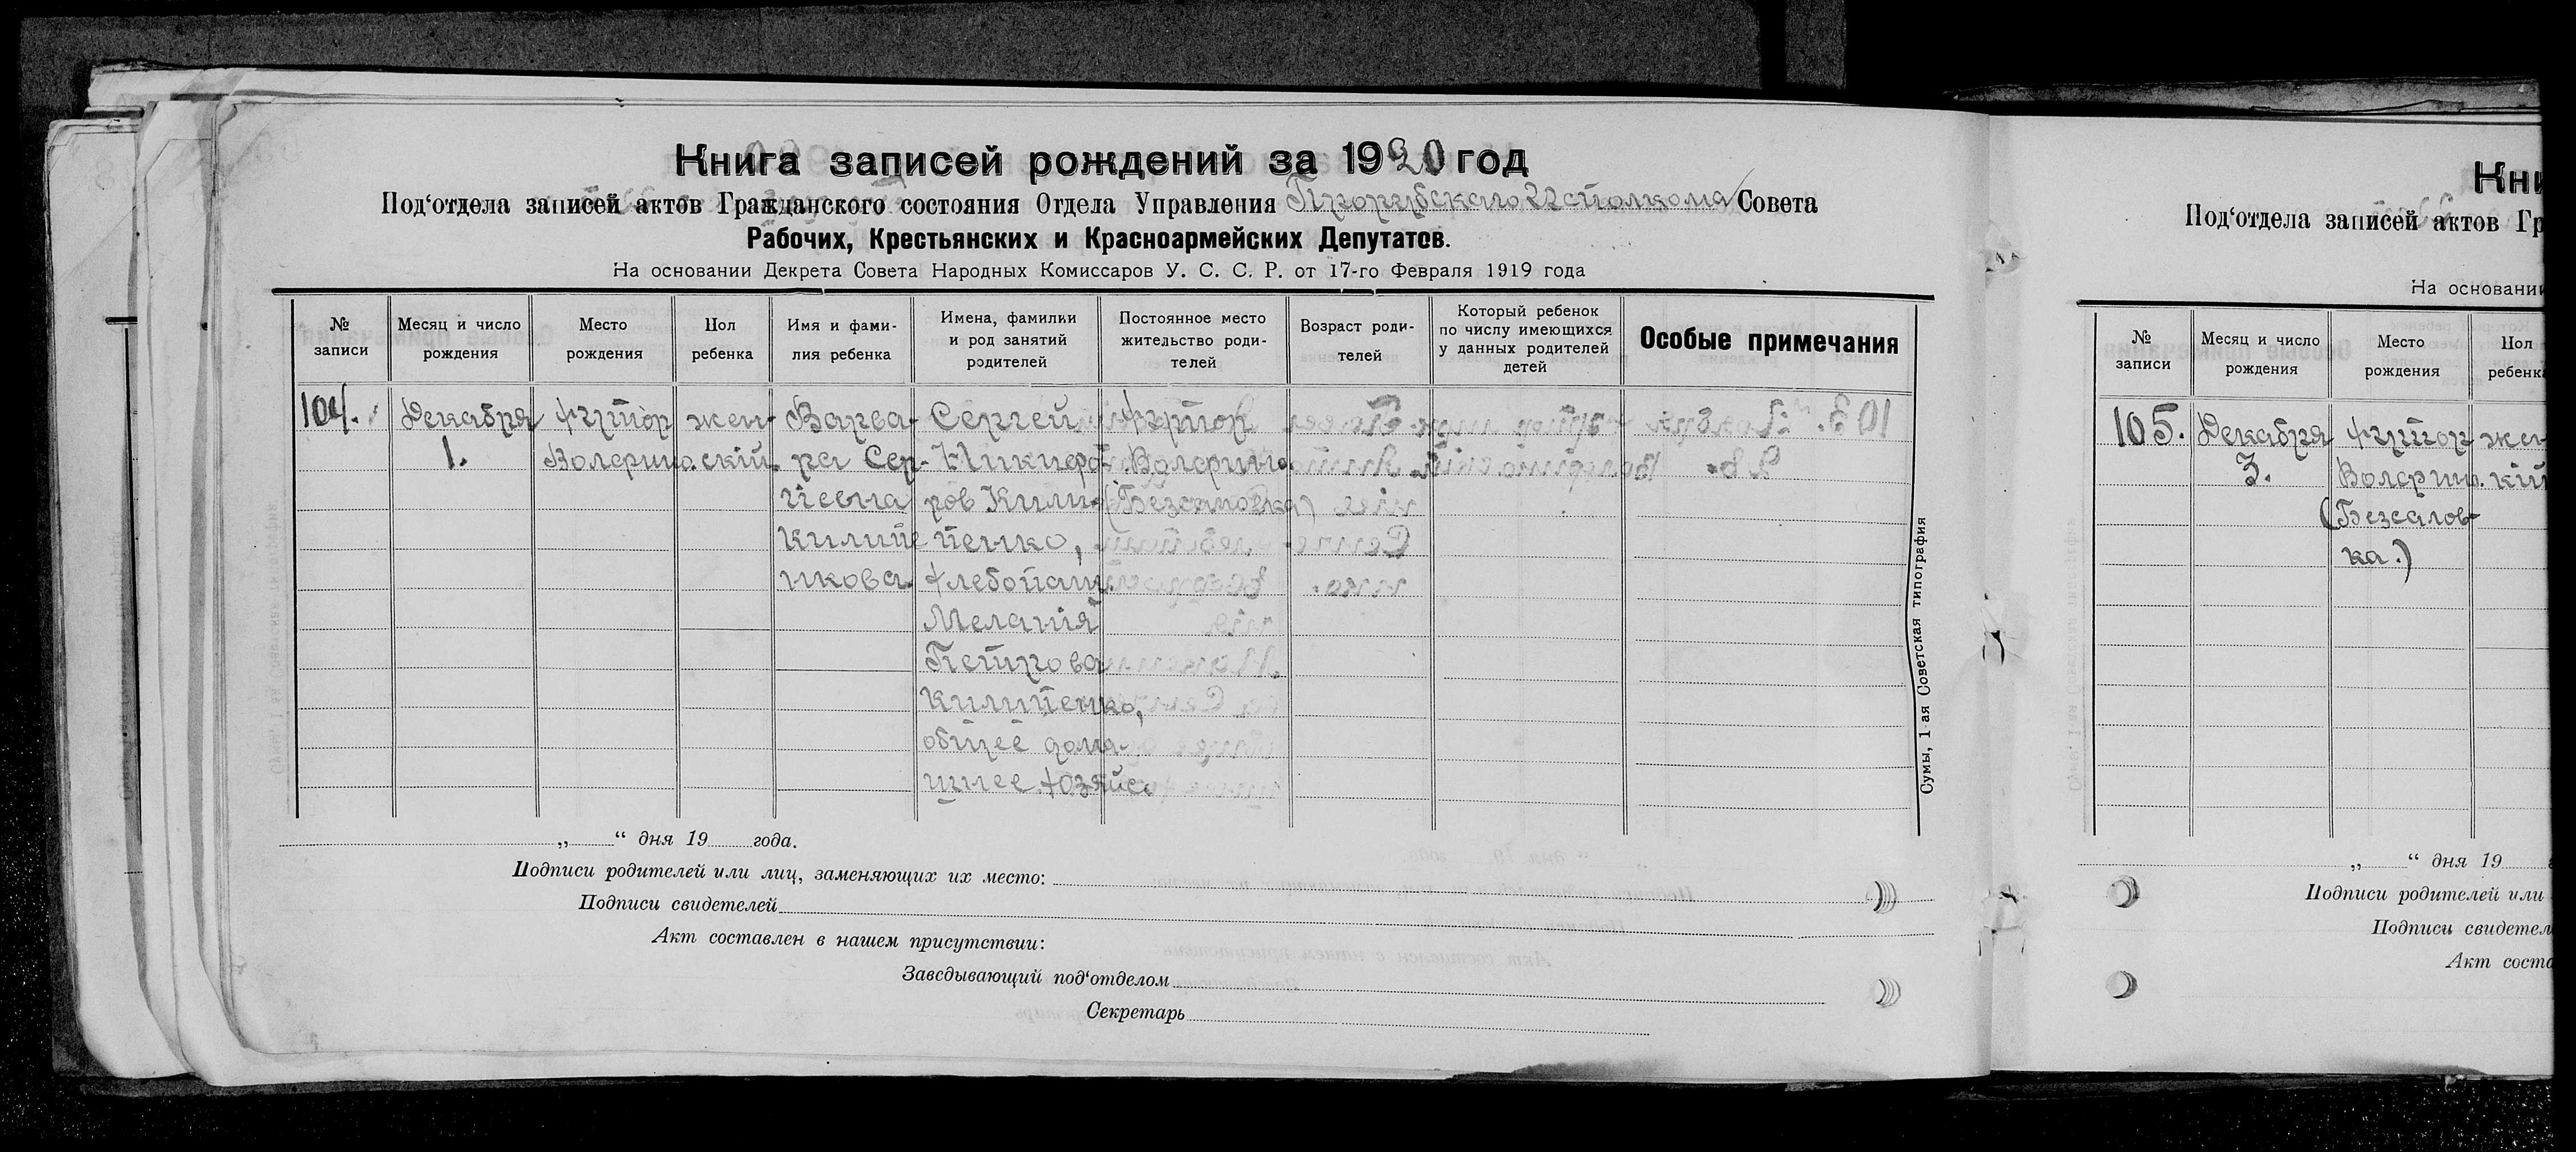 Книга записей рождений за 1920 год
Под‘отдела записей актов Гражданского состояния Отдела Управления Совета
Рабочих, Крестьянских и Красноармейских Депутатов.
На основании Декрета Совета Народных Комиссаров У. С. С. Р. от 17-го Февраля 1919 года
№ записи
Месяц и число рождения
Место рождения
Пол ребенка
Имя и фами-
лия ребенка
Имена, фамилии
и род занятий
родителей
Постоянное место
жительство роди-
телей
Возраст роди-
телей
Который ребенок
по числу имеющихся
у данных родителей
детей
Особые примечания
104.
Декабря
1.
хутор
жен-
ский.
Варва-
ра Сер-
гіевна
Килипе
нкова
Сергей
Никифо-
ров Кили-
пенко,
хлебопаш.
Меланія
Петрова
Килипенко,
общее дома-
шнее хозяйс.
хутор
„ “ дня 19 года.
Подписи родителей или лиц, заменяющих их место:
Подписи свидетелей
Акт составлен в нашем присутствии:
Заведывающий под‘отделом
Секретарь
Сумы, 1-ая Советская типография
Кни
Под‘отдела записей актов Гр
На основании
№ записи
Месяц и число рождения
Место рождения
Пол ребенка
105.
Декабря
3.
хутор
(Безсалов-
ка.)
жен
кій
„ “ дня 19
Подписи родителей или
Подписи свидетел
Акт соста